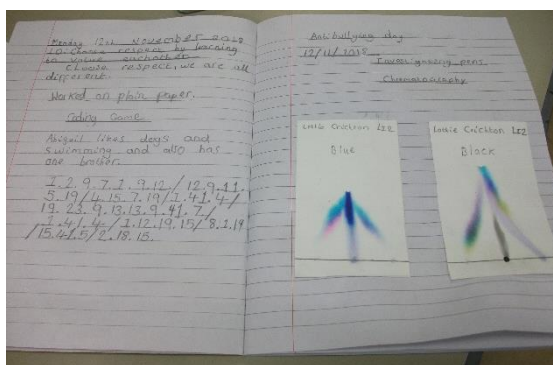 Monday 12th November 2018
L.O. Choose respect by learning
to value eachother
Choose respect, we are all
different.
Worked on plain paper.
Coding Game
Abigail likes dogs and
swimming and also has
one brother.
1.2.9.7.1.9.12/12.9.11.
5.19/4.15.7.19/1.41.4/
19.23.9.13.13.9.41.7/
1.4/4./1.12.19.15/8.1.19
/15.41.5/2.18.15.
Antibullying day
12/11/2018
Investigating pens
Chromatography
Crichton L22
Blue
Crichton L22
Black